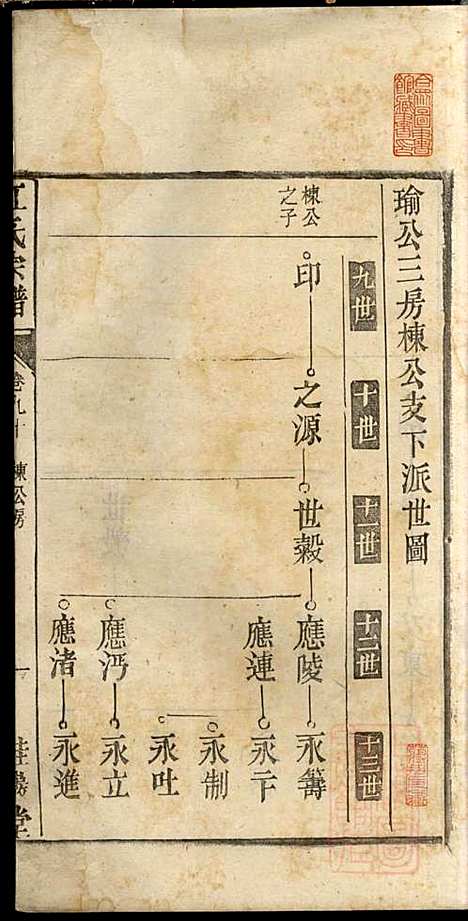 瑜公三房棟公支下派世圖
九世
十世
十一世
十二世
十三世
棟公
之子
印
之源
世穀
應陵
應連
應沔
應渚
永籌
永卞
永制
永吐
永立
永進
江氏宗譜
卷九十
棟公房
一